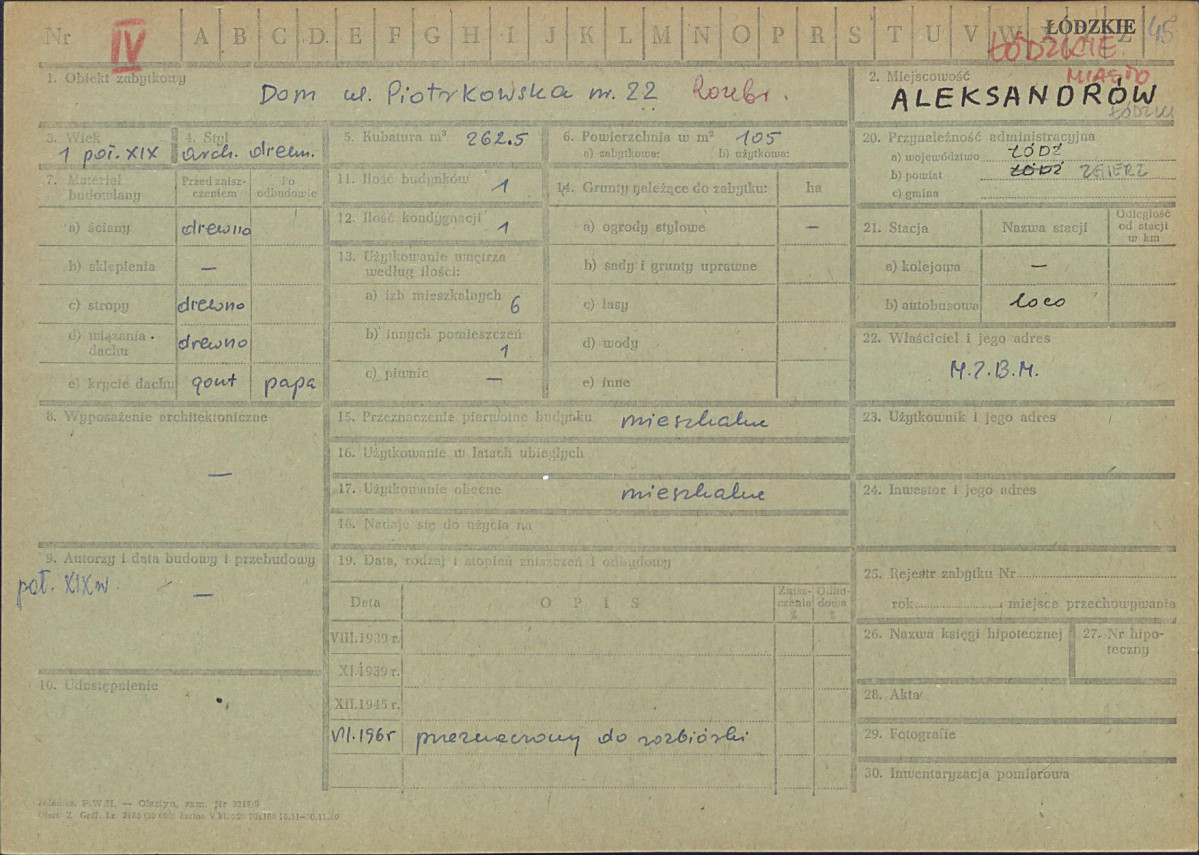 Nr IV A B C D E F G H I J K L M N O P R S T U V W ŁÓDZKIE 45
ŁÓDZKIE
MIASTO
1. Obiekt zabytkowy
Dom ul. Piotrkowska nr. 22 Rozebr.
2. Miejscowość
ALEKSANDRÓW
ŁÓDZKI
3. Wiek
1 poł. XIX
4. Styl
arch. drewn.
5. Kubatura m³ 262.5
6. Powierzchnia w m² 105
a) zabytkowa: b) użytkowa:
20. Przynależność administracyjna
a) województwo ŁÓDŹ
b) powiat ŁÓDŹ ZGIERZ
c) gmina
7. Materiał budowlany
Przed zniszczeniem
Po odbudowie
a) ściany drewno
b) sklepienia —
c) stropy drewno
d) wiązania dachu drewno
e) krycie dachu gont papa
11. Ilość budynków 1
12. Ilość kondygnacji 1
13. Użytkowanie wnętrza
według ilości:
a) izb mieszkalnych 6
b) innych pomieszczeń
1
c) piwnic —
14. Grunty należące do zabytku: ha
a) ogrody stylowe —
b) sady i grunty uprawne
c) lasy
d) wody
e) inne
21. Stacja Nazwa stacji Odległość od stacji w km
a) kolejowa —
b) autobusowa loco
22. Właściciel i jego adres
M.Z.B.M.
8. Wyposażenie architektoniczne
—
15. Przeznaczenie pierwotne budynku mieszkalne
16. Użytkowanie w latach ubiegłych
17. Użytkowanie obecne mieszkalne
18. Nadaje się do użycia na
23. Użytkownik i jego adres
24. Inwestor i jego adres
9. Autorzy i data budowy i przebudowy
poł. XIX w. —
10. Udostępnienie
19. Data, rodzaj i stopień zniszczeń i odbudowy
Data OPIS Zniszczenia % Odbudowa %
VIII.1939 r.
XI.1939 r.
XII.1945 r.
VII.1965 przeznaczony do rozbiórki
25. Rejestr zabytku Nr
rok miejsce przechowywania
26. Nazwa księgi hipotecznej
27. Nr hipoteczny
28. Akta
29. Fotografie
30. Inwentaryzacja pomiarowa
P.W.H. — Olsztyn, zam. Nr